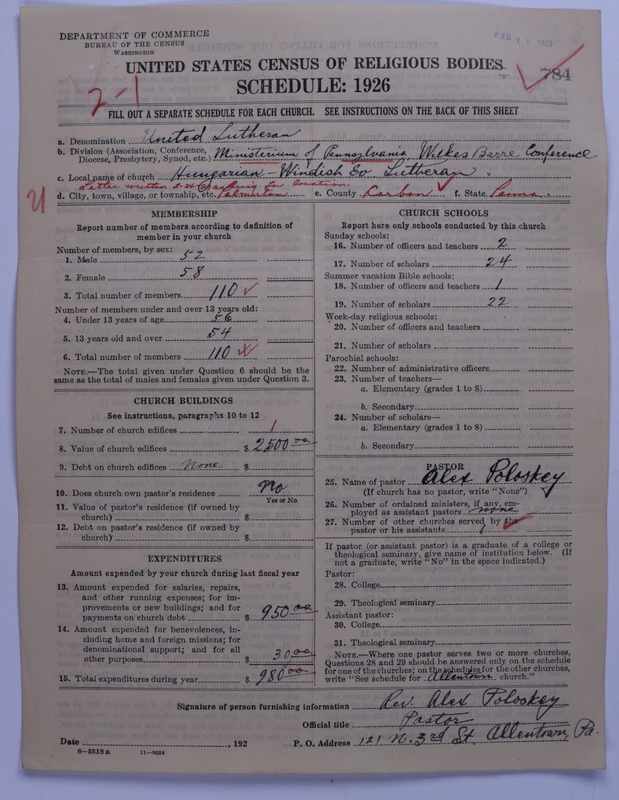 DEPARTMENT OF COMMERCE
BUREAU OF THE CENSUS
WASHINGTON
UNITED STATES CENSUS OF RELIGIOUS BODIES
SCHEDULE: 1926
784
2-1
FILL OUT A SEPARATE SCHEDULE FOR EACH CHURCH. SEE INSTRUCTIONS ON THE BACK OF THIS SHEET
a. Denomination United Lutheran
b. Division (Association, Conference, Diocese, Presbytery, Synod, etc.) Ministerium of Pennsylvania Wilkes Barre Conference
c. Local name of church Hungarian - Windish Ev Lutheran.
Letter written 2-24 asking for location.
d. City, town, village, or township, etc. Palmerton e. County Carbon f. State Penna
MEMBERSHIP
Report number of members according to definition of
member in your church
Number of members, by sex:
1. Male 52
2. Female 58
3. Total number of members 110
Number of members under and over 13 years old:
4. Under 13 years of age 56
5. 13 years old and over 54
6. Total number of members 110
NOTE.—The total given under Question 6 should be the
same as the total of males and females given under Question 3.
CHURCH BUILDINGS
See instructions, paragraphs 10 to 12
7. Number of church edifices 1
8. Value of church edifices $ 2500.00
9. Debt on church edifices None $
10. Does church own pastor's residence No
Yes or No
11. Value of pastor's residence (if owned by
church) $
12. Debt on pastor's residence (if owned by
church) $
EXPENDITURES
Amount expended by your church during last fiscal year
13. Amount expended for salaries, repairs,
and other running expenses; for im-
provements or new buildings; and for
payments on church debt $ 950.00
14. Amount expended for benevolences, in-
cluding home and foreign missions; for
denominational support; and for all
other purposes $ 30.00
15. Total expenditures during year $ 980.00
CHURCH SCHOOLS
Report here only schools conducted by this church
Sunday schools:
16. Number of officers and teachers 2
17. Number of scholars 24
Summer vacation Bible schools:
18. Number of officers and teachers 1
19. Number of scholars 22
Week-day religious schools:
20. Number of officers and teachers
21. Number of scholars
Parochial schools:
22. Number of administrative officers
23. Number of teachers—
a. Elementary (grades 1 to 8)
b. Secondary
24. Number of scholars—
a. Elementary (grades 1 to 8)
b. Secondary
PASTOR
25. Name of pastor Alex Poloskey
(If church has no pastor, write "None")
26. Number of ordained ministers, if any, em-
ployed as assistant pastors none
27. Number of other churches served by the
pastor or his assistants 1
If pastor (or assistant pastor) is a graduate of a college or
theological seminary, give name of institution below. (If
not a graduate, write "No" in the space indicated.)
Pastor:
28. College
29. Theological seminary
Assistant pastor:
30. College
31. Theological seminary
NOTE.—Where one pastor serves two or more churches,
Questions 28 and 29 should be answered only on the schedule
for one of the churches; on the schedules for the other churches,
write "See schedule for Allentown church."
Signature of person furnishing information Rev. Alex Poloskey
Official title Pastor
Date , 192 P. O. Address 121 N. 3rd St. Allentown, Pa.
8—5518 a 11—9054